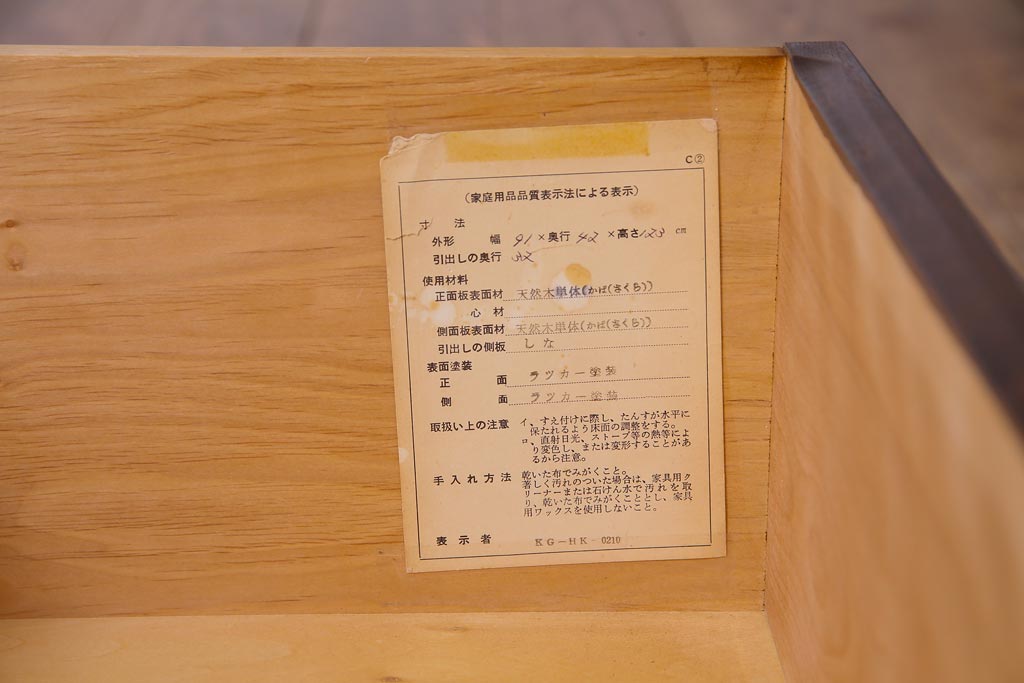 C②
(家庭用品品質表示法による表示)
寸 法
外形 幅 91 × 奥行 42 × 高さ 123 cm
引出しの奥行 32
使用材料
正面板表面材 天然木単体(かば(さくら))
心 材
側面板表面材 天然木単体(かば(さくら))
引出しの側板 しな
表面塗装
正 面 ラツカー塗装
側 面 ラツカー塗装
取扱い上の注意 イ、すえ付けに際し、たんすが水平に
保たれるよう床面の調整をする。
ロ、直射日光、ストーブ等の熱等によ
り変色し、または変形することがあ
るから注意。
手入れ方法 乾いた布でみがくこと。
著しく汚れのついた場合は、家具用ク
リーナーまたは石けん水で汚れを取
り、乾いた布でみがくこととし、家具
用ワックスを使用しないこと。
表示者 KG-HK-0210